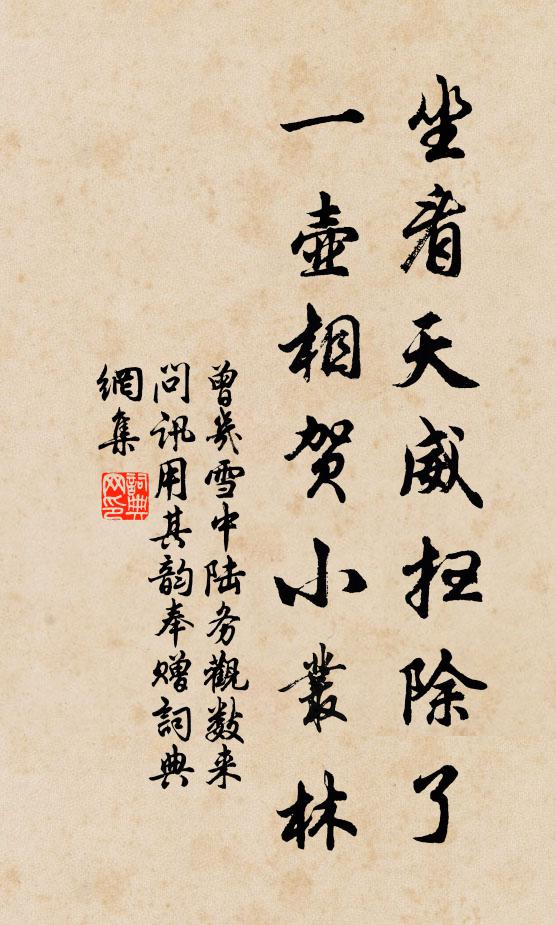 坐看天威扫除了
一壶相贺小丛林
曾几雪中陆务观数来
问讯用其韵奉赠词典
网集
詞典
网印